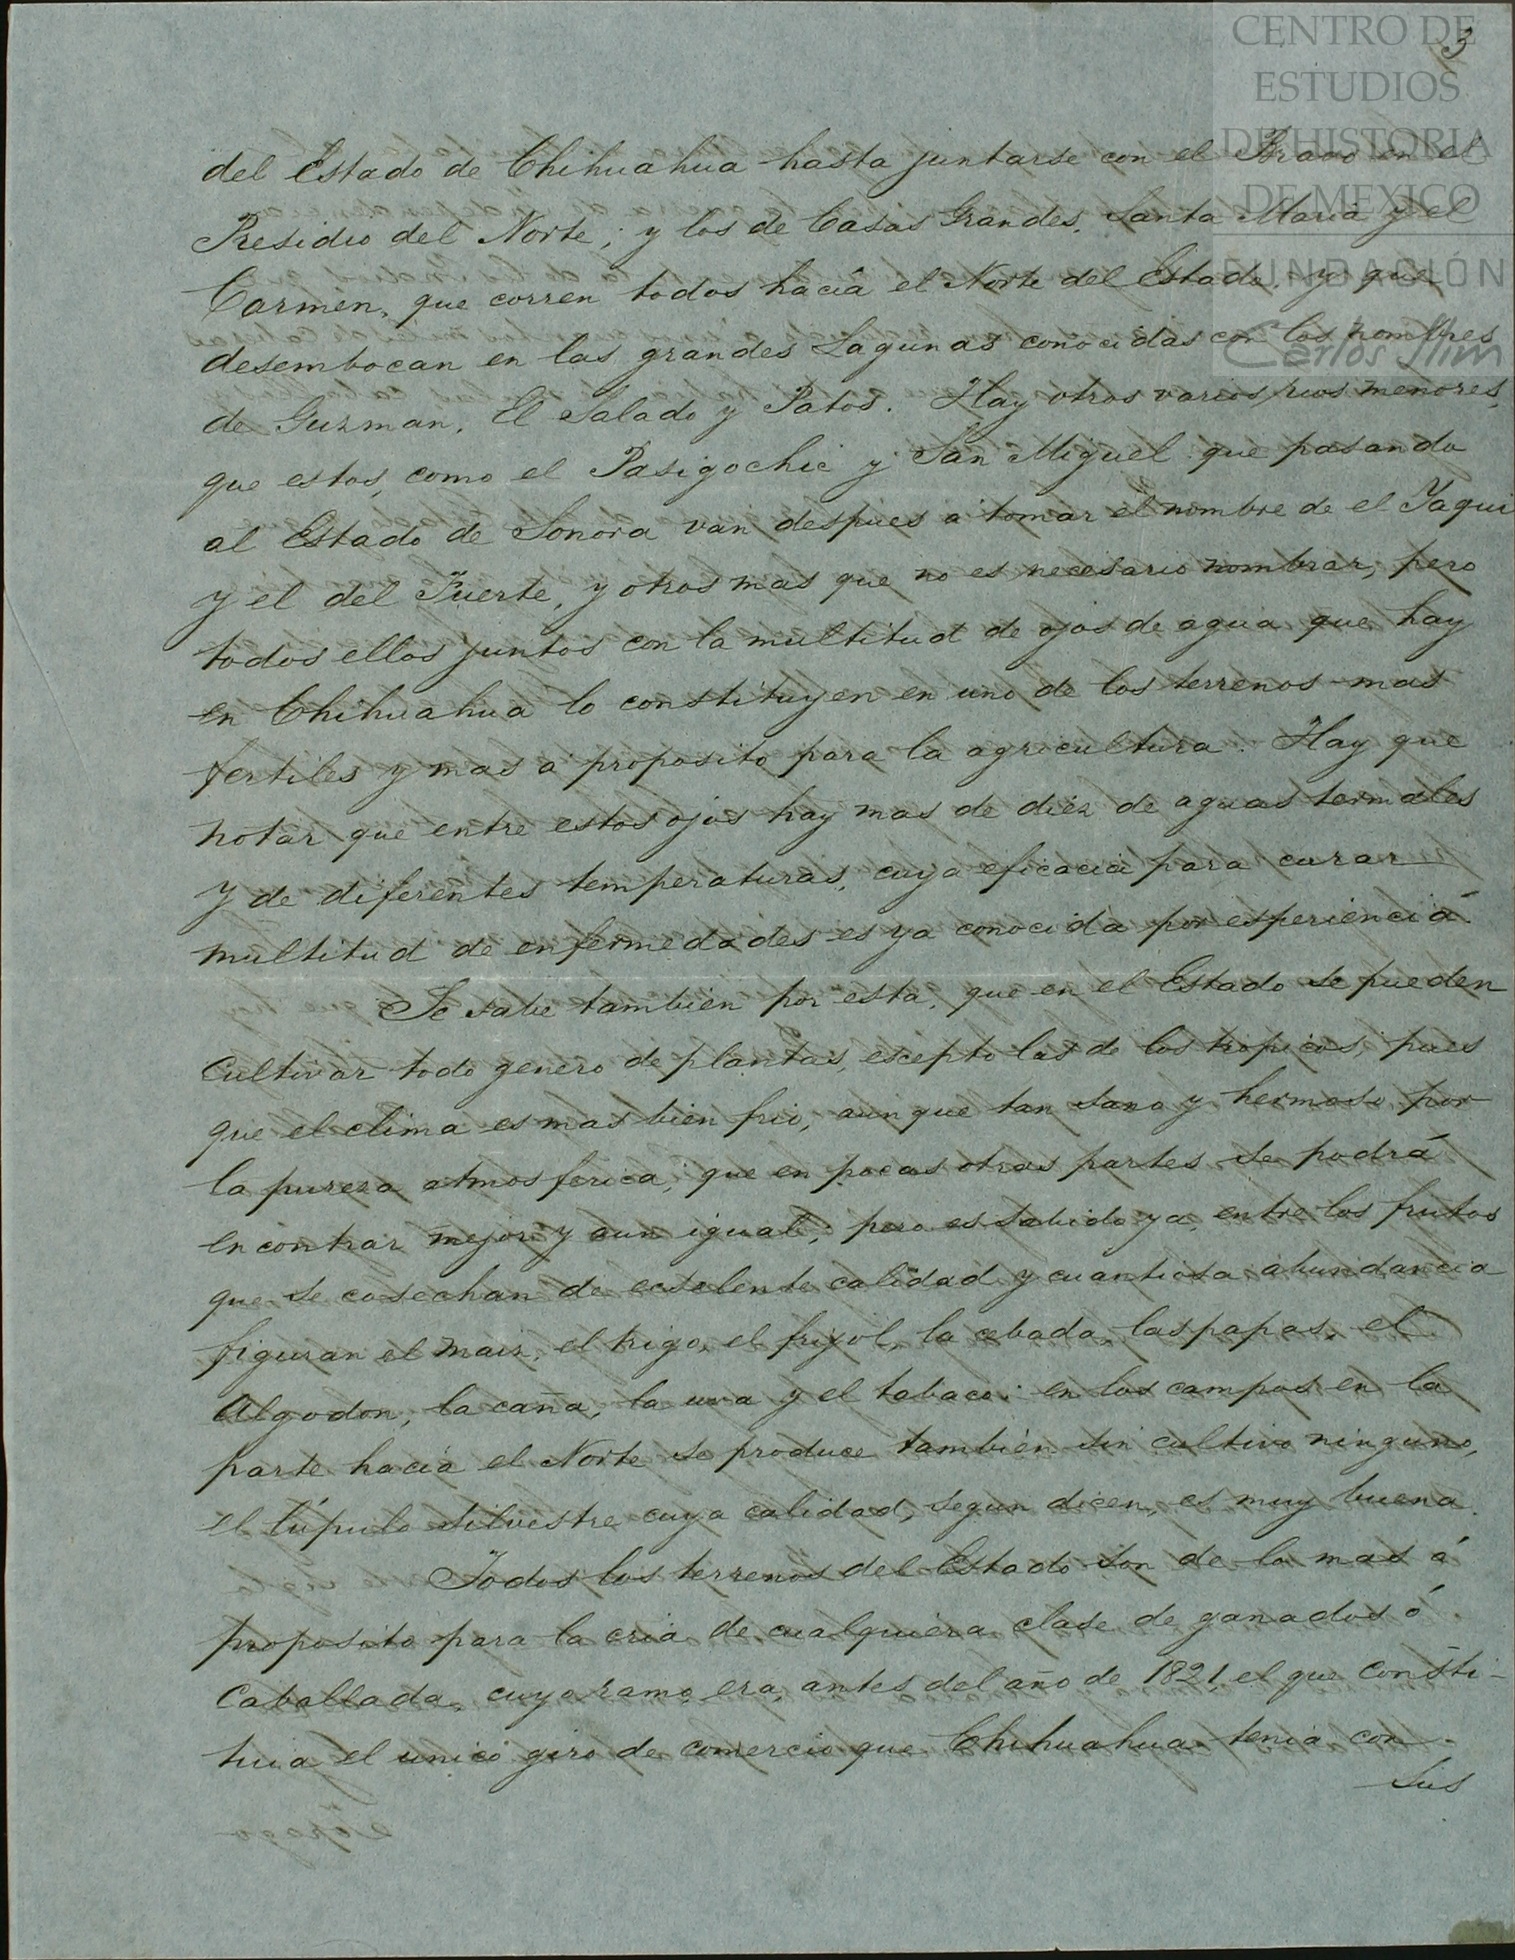 CENTRO DE
ESTUDIOS
DE HISTORIA
DE MEXICO
FUNDACIÓN
Carlos Slim
3
del Estado de Chihuahua hasta juntarse con el Bravo en el
Presidio del Norte; y los de Casas Grandes, Santa Maria y el
Carmen, que corren todos hacia el Norte del Estado, y que
desembocan en las grandes Lagunas conocidas con los nombres
de Guzman, El Salado y Patos. Hay otros varios rios menores,
que estos, como el Pasigochic y San Miguel que pasando
al Estado de Sonora van despues a tomar el nombre de el Yaqui
y el del Fuerte, y otros mas que no es necesario nombrar, pero
todos ellos juntos con la multitud de ojos de agua que hay
en Chihuahua lo constituyen en uno de los terrenos mas
fertiles y mas a proposito para la agricultura. Hay que
notar que entre estos ojos hay mas de diez de aguas termales
y de diferentes temperaturas, cuya eficacia para curar
multitud de enfermedades es ya conocida por esperiencia.
Se sabe tambien por esta, que en el Estado se pueden
cultivar todo genero de plantas, escepto las de los tropicos, pues
que el clima es mas bien frio, aunque tan sano y hermoso por
la pureza atmosferica, que en pocas otras partes se podrá
encontrar mejor y aun igual; pero es sabido ya, entre los frutos
que se cosechan de escelente calidad y cuantiosa abundancia
figuran el maiz, el trigo, el frijol, la cebada, las papas, el
Algodon, la caña, la uva y el tabaco: en los campos en la
parte hacia el Norte se produce tambien sin cultivo ninguno,
el lúpulo silvestre cuya calidad, segun dicen, es muy buena.
Todos los terrenos del Estado son de lo mas á
proposito para la cria de cualquiera clase de ganados ó
Caballada, cuyo ramo era, antes del año de 1821, el que consti-
tuia el unico giro de comercio que Chihuahua tenia con
sus